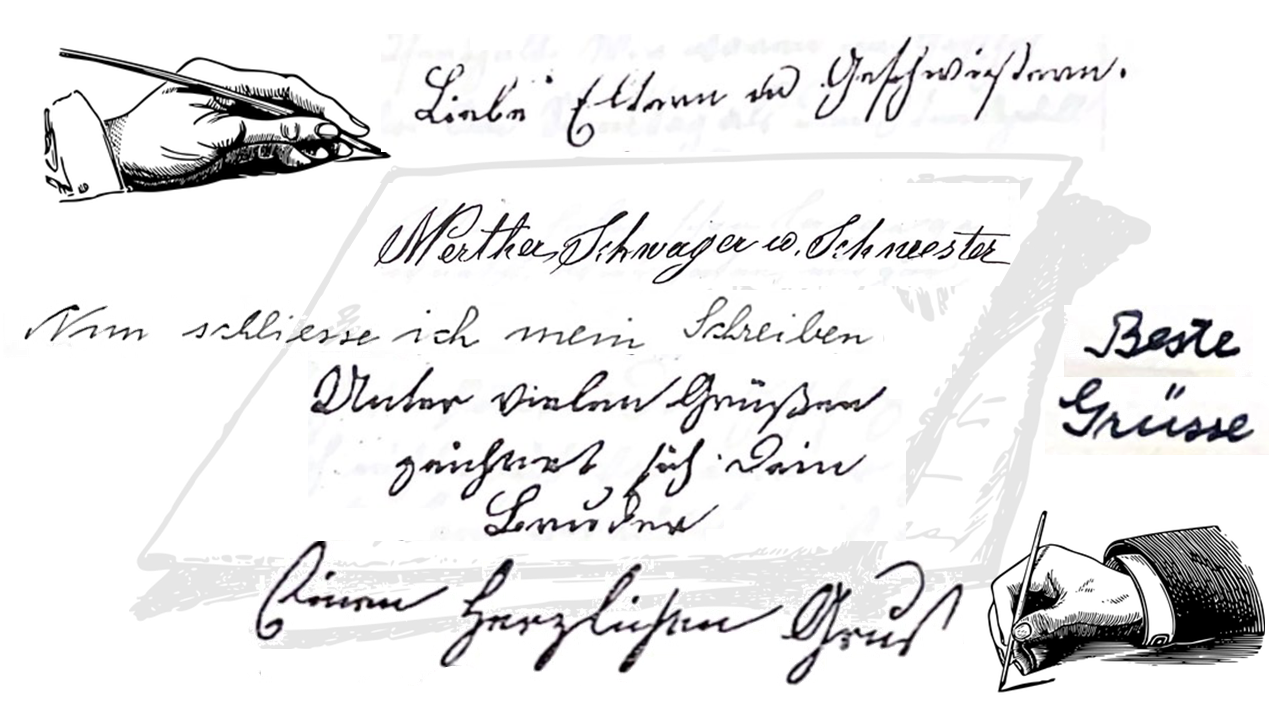 Liebe Eltern u Geschwistern.
Werther Schwager u. Schwester
Nun schliesse ich mein Schreiben
Beste
Grüsse
Unter vielen Grüßen
zeichnet sich Dein
Bruder
Einen herzlichen Gruß